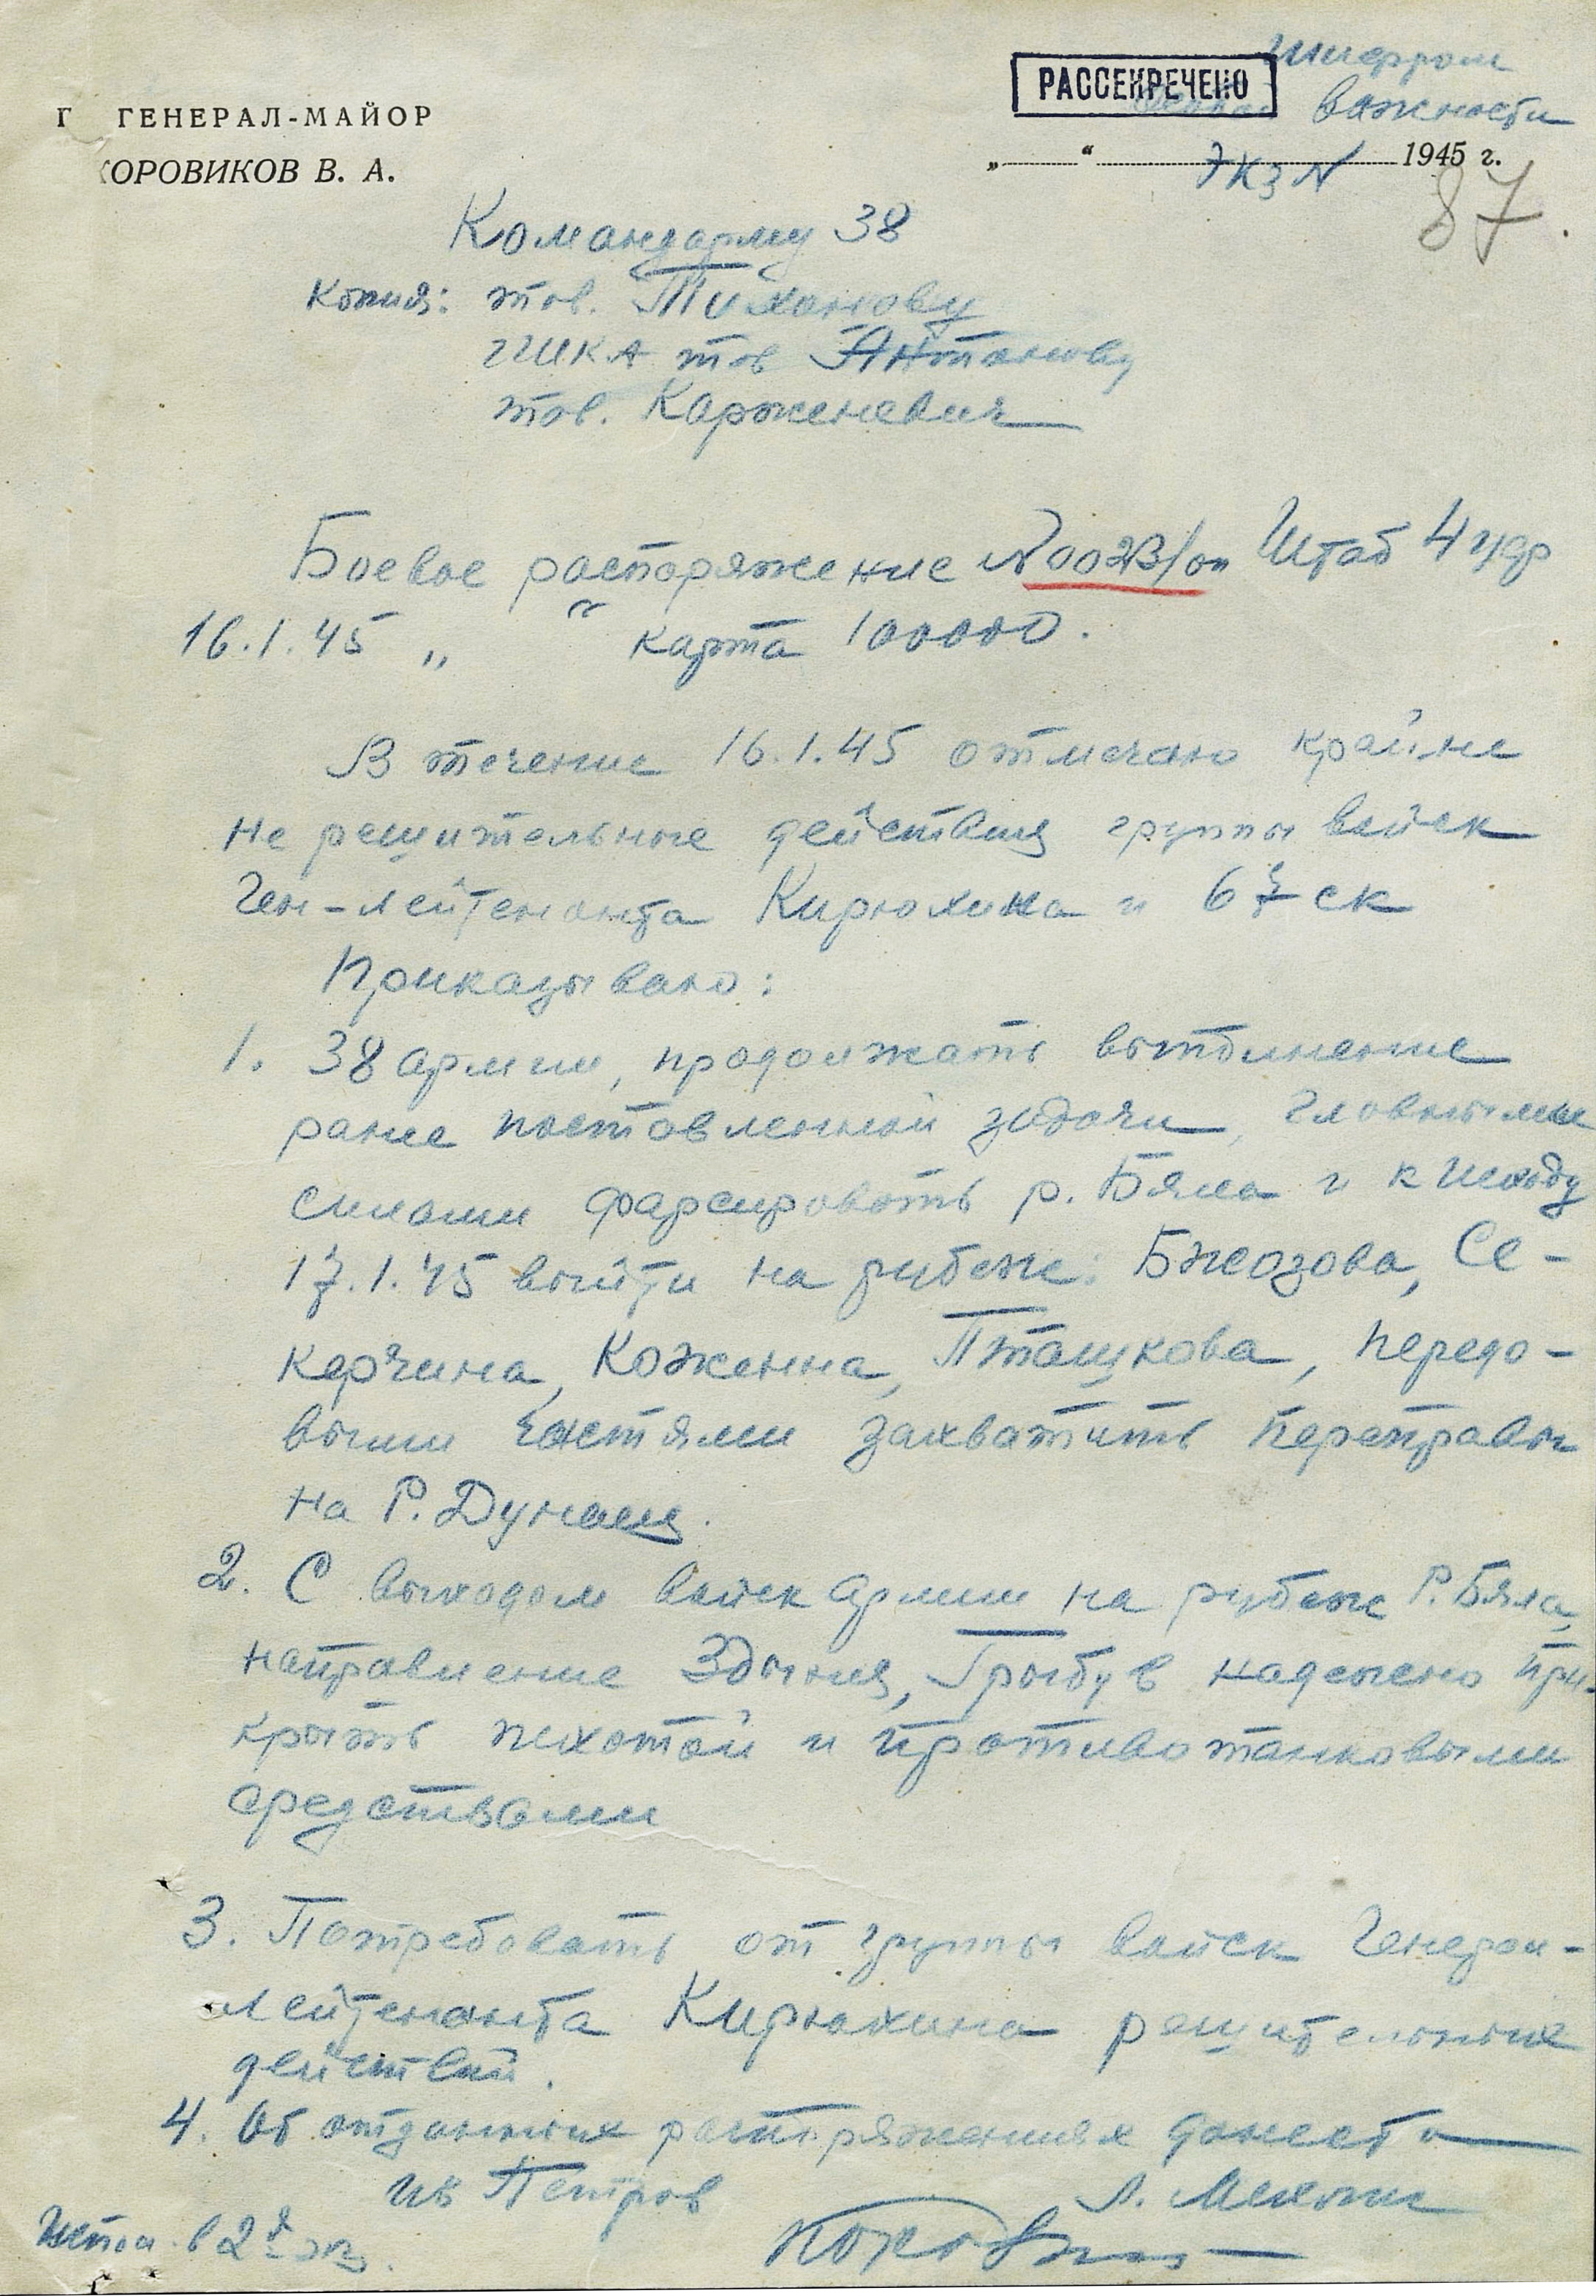 Шифром
РАССЕКРЕЧЕНО
важности
Г ГЕНЕРАЛ-МАЙОР
КОРОВИКОВ В. А.
„ “ экз N 1945 г.
87.
Командарму 38
Копия: тов. Тихонову
тов Антонову
тов. Карженевич
Боевое распоряжение N 0023/оп Штаб 4 укр
16.1.45 „ “ карта 100000.
В течение 16.1.45 отмечаю крайне
не решительные действия группы войск
Ген-лейтенанта Кирюхина и 67 ск
Приказываю:
1. 38 армии, продолжать выполнение
ранее поставленной задачи, главными
силами форсировать р. Бяла и к исходу
17.1.45 выйти на рубеж: Бжозова, Се-
керчина, Коженна, Пташкова, передо-
выми частями захватить переправы
на р. Дунаец.
2. С выходом войск армии на рубеж р. Бяла,
направление Здыня, Грыбув надежно при-
крыть пехотой и противотанковыми
средствами
3. Потребовать от группы войск Генерал-
лейтенанта Кирюхина решительных
действий.
4. Об отданных распоряжениях донести
Ив Петров Л. Мехлис
Коровик
в 2х экз.